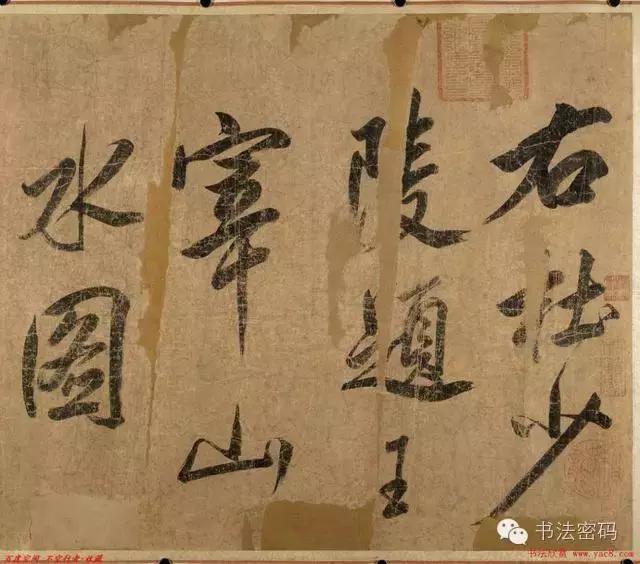 右杜少
陵题王
宰山
水图
书法密码
书法欣赏 www.yac8.com